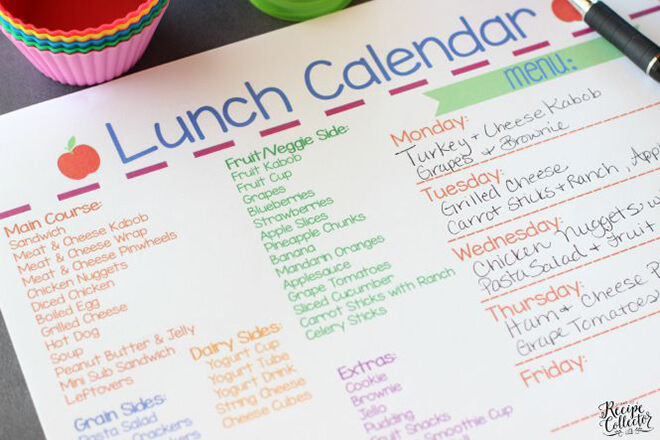 Lunch Calendar
menu:
Main Course:
Sandwich
Meat & Cheese Kabob
Meat & Cheese Wrap
Meat & Cheese Pinwheels
Chicken Nuggets
Diced Chicken
Boiled Egg
Grilled Cheese
Hot Dog
Soup
Peanut Butter & Jelly
Mini Sub Sandwich
Leftovers
Grain Sides:
Pasta Salad
Crackers
Fruit/Veggie Side:
Fruit Kabob
Fruit Cup
Grapes
Blueberries
Strawberries
Apple Slices
Pineapple Chunks
Banana
Mandarin Oranges
Applesauce
Grape Tomatoes
Sliced Cucumber
Carrot Sticks with Ranch
Celery Sticks
Dairy Sides:
Yogurt Cup
Yogurt Tube
Yogurt Drink
String Cheese
Cheese Cubes
Extras:
Cookie
Brownie
Jello
Pudding
Fruit Snacks
Smoothie Cup
Monday:
Turkey + Cheese Kabob
Grapes & Brownie
Tuesday:
Grilled Cheese
Carrot Sticks + Ranch,
Wednesday:
Chicken Nuggets,
Pasta Salad + Fruit
Thursday:
Ham + Cheese
Grape Tomatoes
Friday:
Recipe
Collector